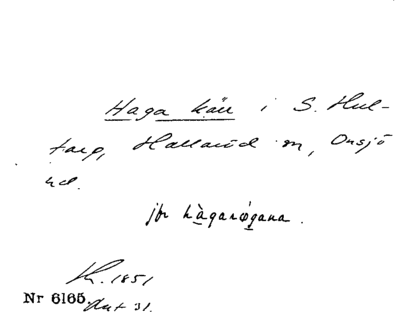 Haga kärr i S. Hul-
tarp, Hallaröd sn, Onsjö
hd.
jfr hàgarø̀gana.
K. 1851
Nr 6165. Aut 31.